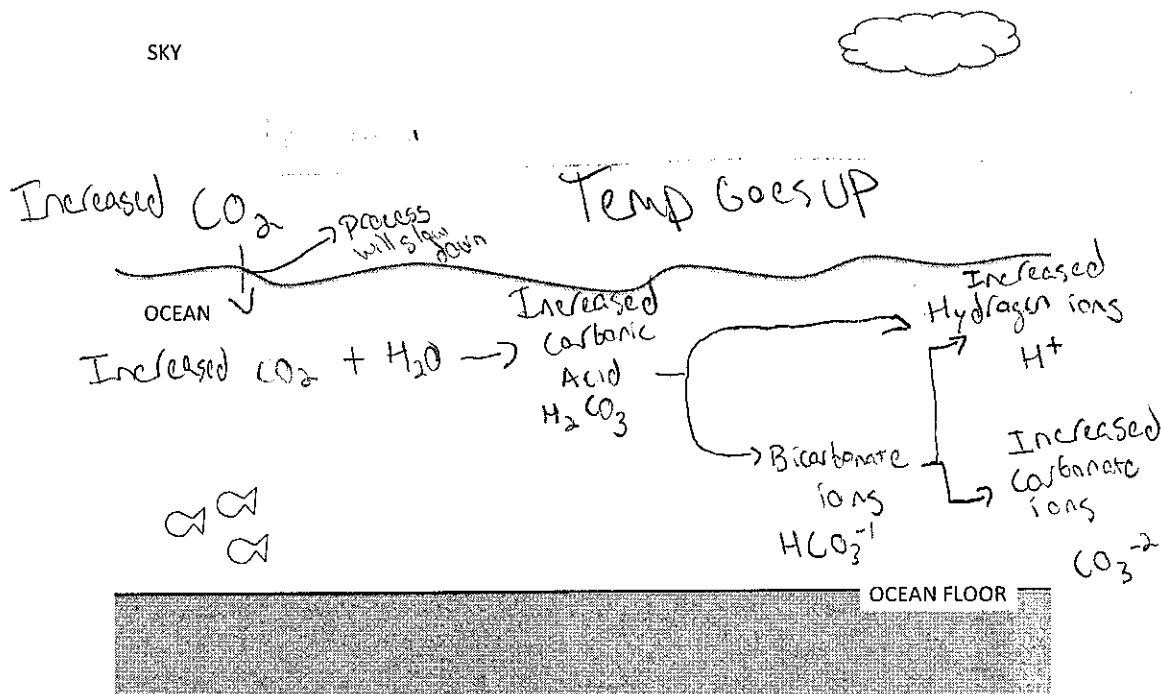 SKY
Increased CO₂
process
will slow
down
Temp Goes UP
OCEAN
Increased CO₂ + H₂O →
Increased
Carbonic
Acid
H₂CO₃
Increased
Hydrogen ions
H⁺
Bicarbonate
ions
HCO₃⁻¹
Increased
Carbonate
ions
CO₃⁻²
OCEAN FLOOR